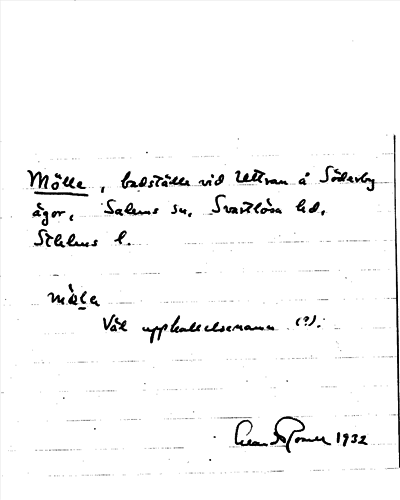 Mölle, badställe vid Uttran å Söderby
ägor, Salems sn, Svartlösa hd,
Sthlms l.
mö̀lɛ
Väl uppkallelsenamn (?).
1932